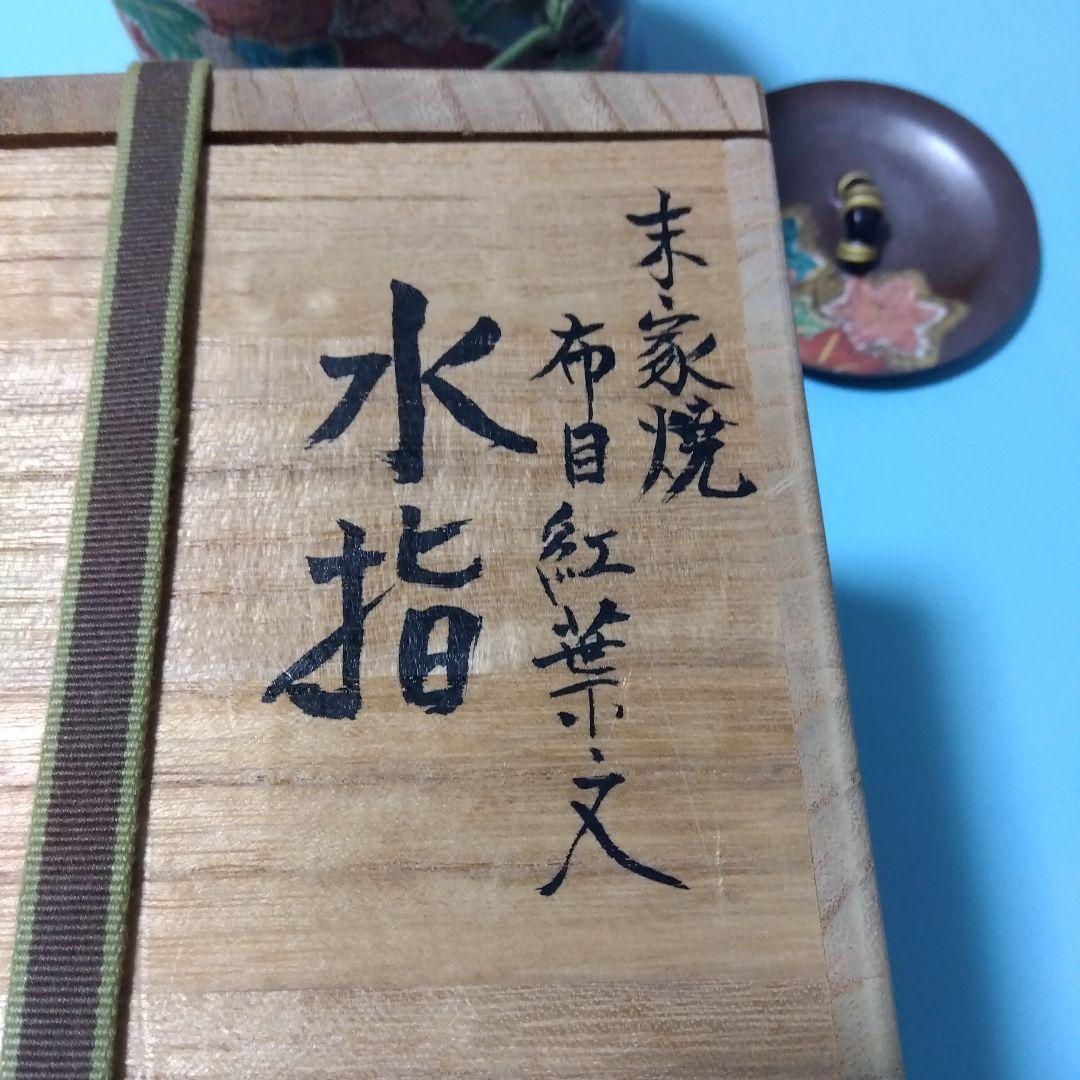 末家焼
布目紅葉文
水指